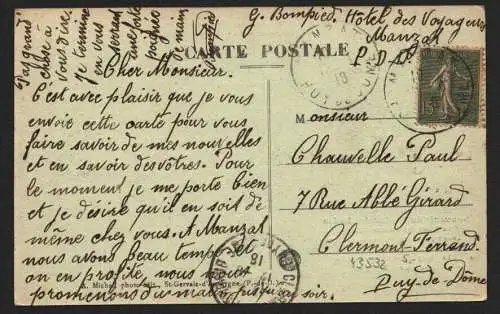 G. Bompied, Hôtel des Voyageurs
Manzat
P-D-D
CARTE POSTALE
Cher Monsieur.
C'est avec plaisir que je vous
envoie cette carte pour vous
faire savoir de mes nouvelles
et en savoir des vôtres. Pour
le moment je me porte bien
et je désire qu'il en soit de
même chez vous. A Manzat
nous avons beau temps et
on en profite, nous nous
promenons du matin jusqu'au soir.
Pas grand
chose à
vous dire.
Je termine
en vous
serrant
une forte
poignée
de main
Monsieur
Chauvelle Paul
7 Rue Abbé Girard
Clermont-Ferrand.
43532
Puy-de-Dôme
A. Michel photo édit., St-Gervais-d'Auvergne (P.-de-D.)
PUY-DE-DOME
18
15